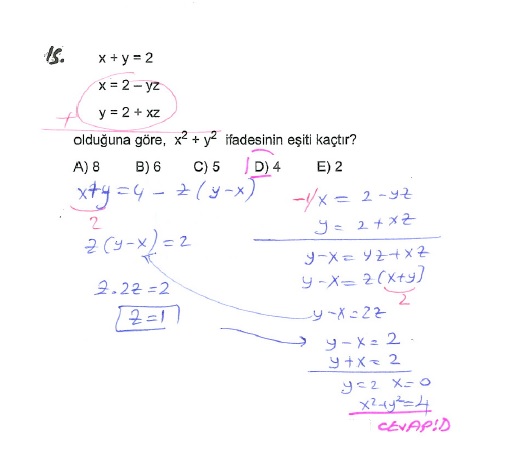 15.
x + y = 2
x = 2 – yz
y = 2 + xz
+
olduğuna göre, x² + y² ifadesinin eşiti kaçtır?
A) 8 B) 6 C) 5 D) 4 E) 2
x+y = 4 - z(y-x)
2
z(y-x) = 2
z.2z = 2
z = 1
-1/ x = 2 - yz
y = 2 + xz
y-x = yz+xz
y-x = z(x+y)
2
y-x = 2z
y-x = 2
y+x = 2
y=2 x=0
x²+y²=4
CEVAP:D